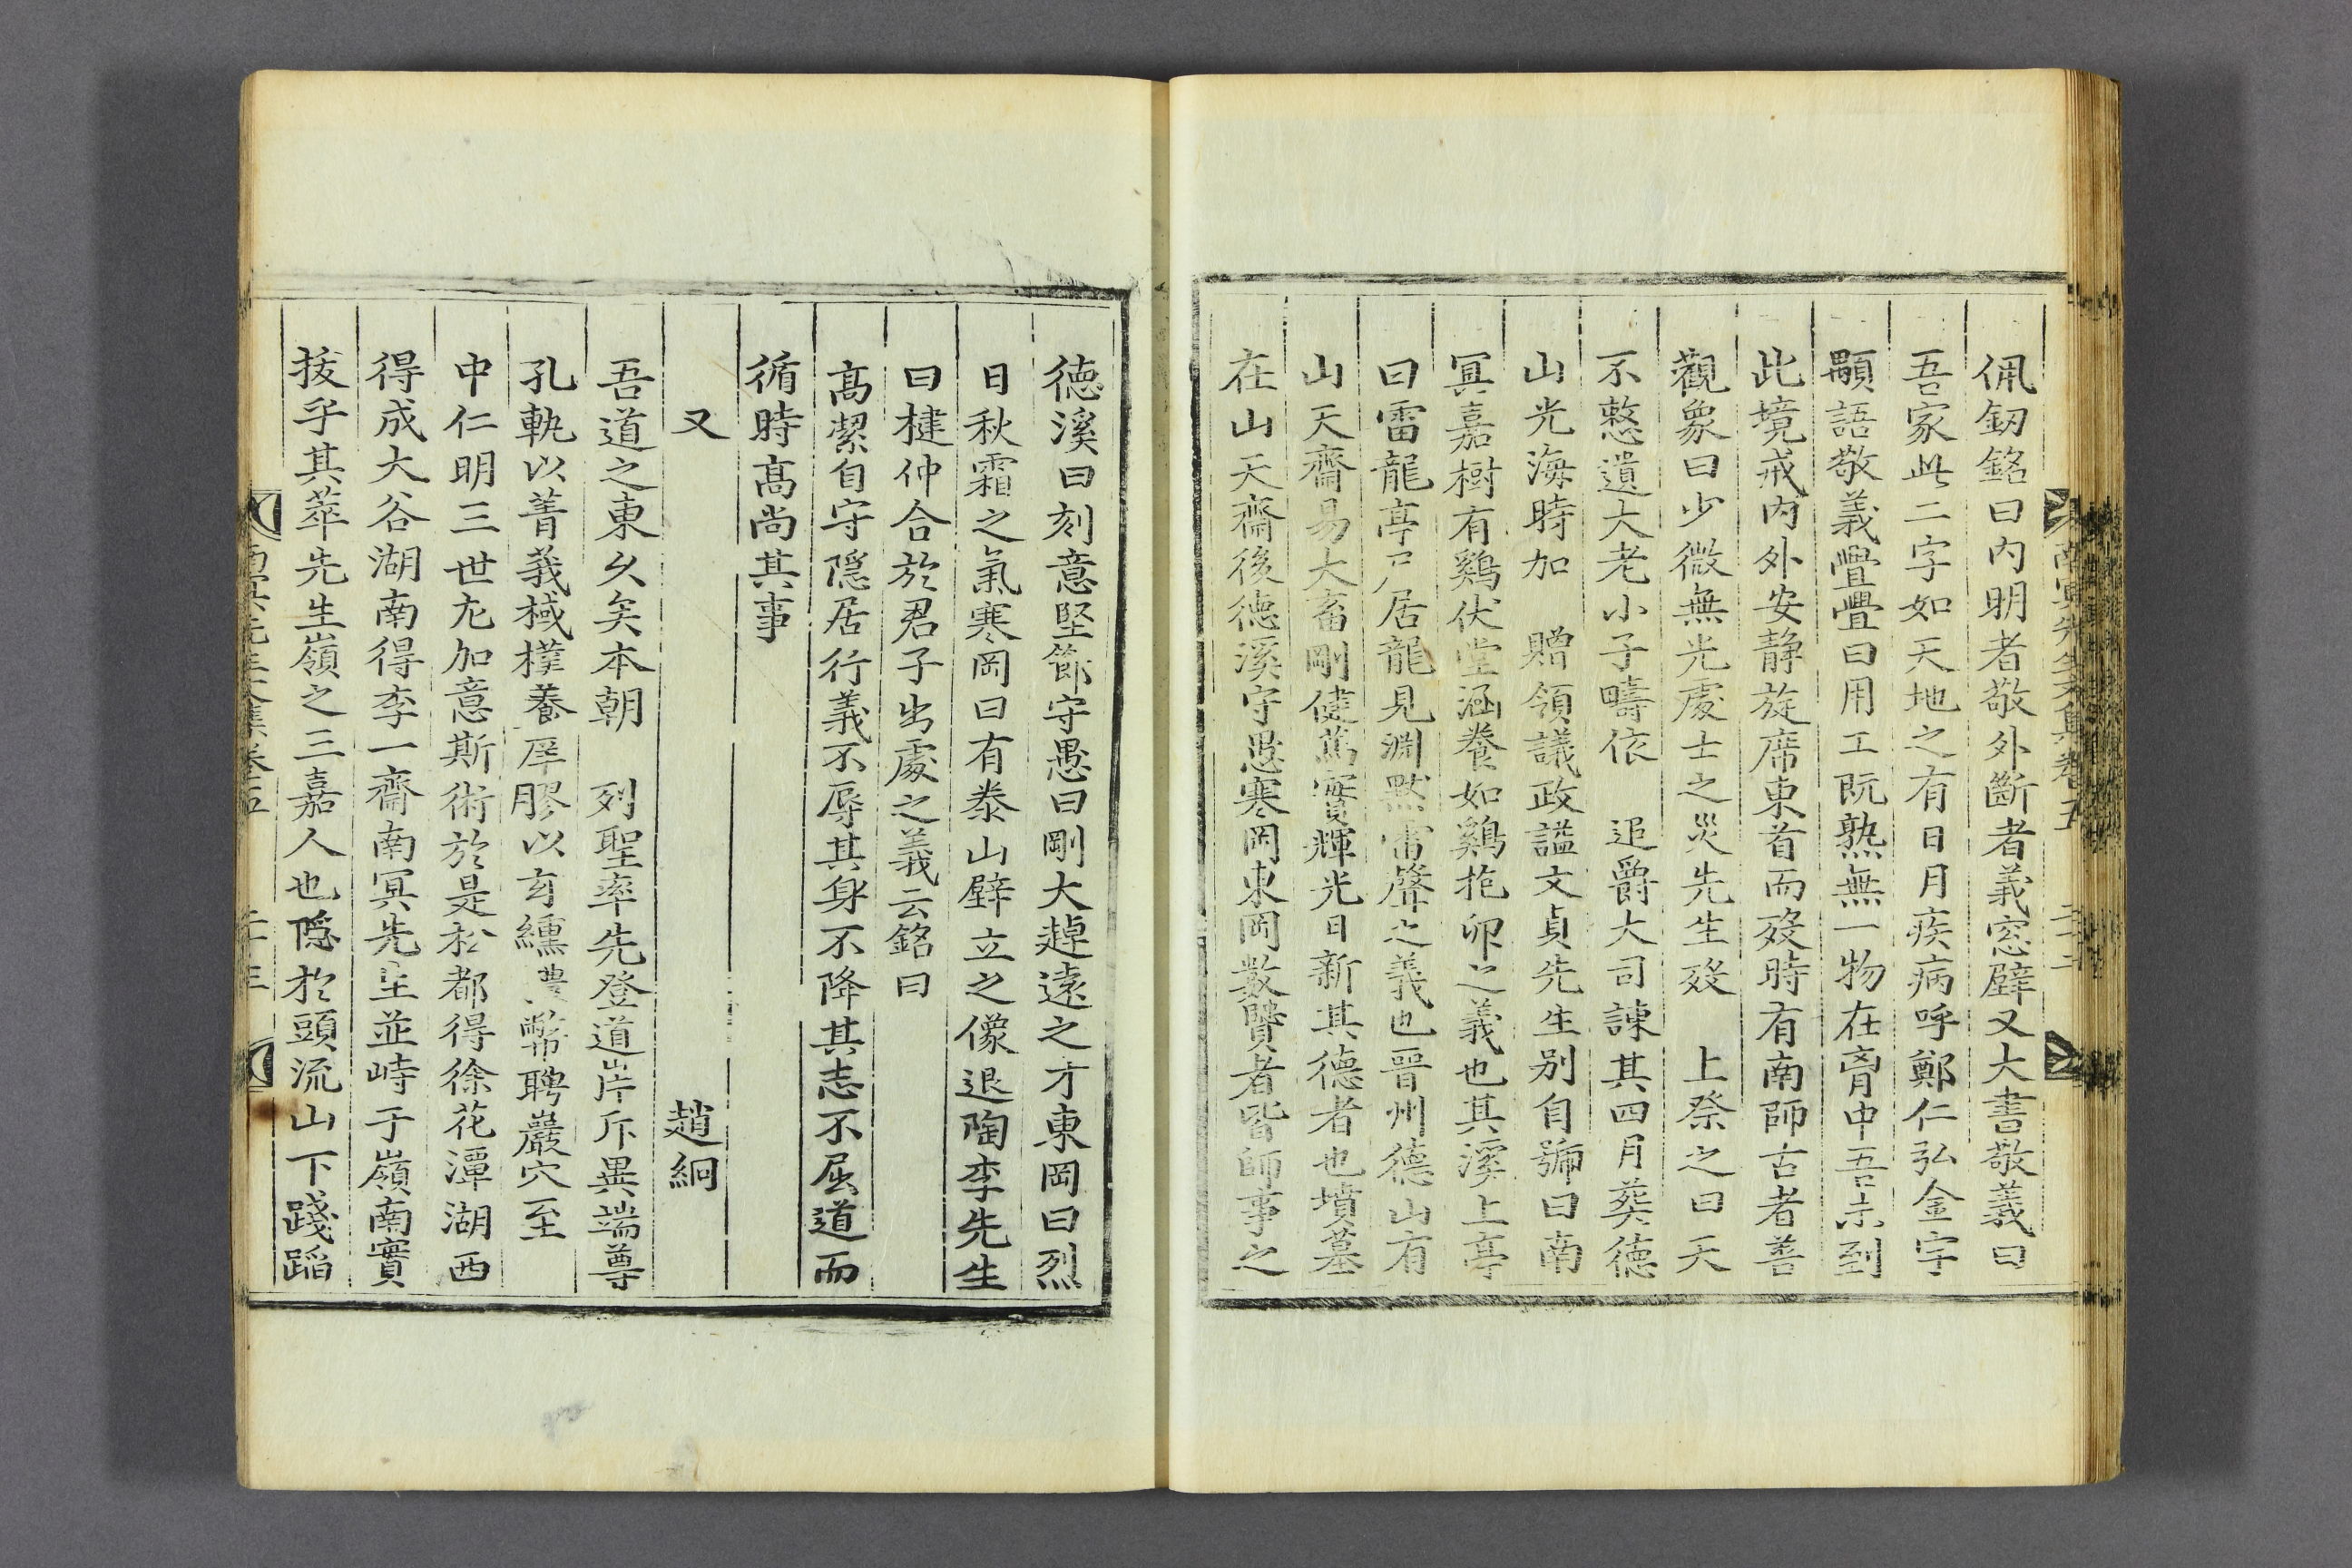 佩釼銘曰内明者敬外斷者義窓壁又大書敬義曰
吾家此二字如天地之有日月疾病呼鄭仁弘金宇
顒語敬義亹亹曰用工既熟無一物在胷中吾未到
此境戒内外安静旋席東首而歿時有南師古者善
觀象曰少微無光處士之災先生歿 上祭之曰天
不憖遺大老小子疇依 追爵大司諫其四月葬德
山光海時加 贈領議政謚文貞先生别自號曰南
冥嘉樹有鷄伏堂涵養如鷄抱卵之義也其溪上亭
曰雷龍亭尸居龍見淵黙雷聲之義也晉州德山有
山天齋易大畜剛健篤實輝光日新其德者也墳墓
在山天齋後德溪守愚寒岡東岡數賢者皆師事之
南冥先生文集卷五 二十二
德溪曰刻意堅節守愚曰剛大趠遠之才東岡曰烈
日秋霜之氣寒岡曰有泰山壁立之像退陶李先生
曰楗仲合於君子出處之義云銘曰
高潔自守隠居行義不辱其身不降其志不屈道而
循時高尚其事
又 趙絅
吾道之東久矣本朝 列聖率先登道岸斥異端尊
孔軌以菁莪棫樸養庠膠以玄纁農幣聘巖穴至
中仁明三世尤加意斯術於是松都得徐花潭湖西
得成大谷湖南得李一齋南冥先生並峙于嶺南實
拔乎其萃先生嶺之三嘉人也隠於頭流山下踐蹈
南冥先生文集卷五 二十三